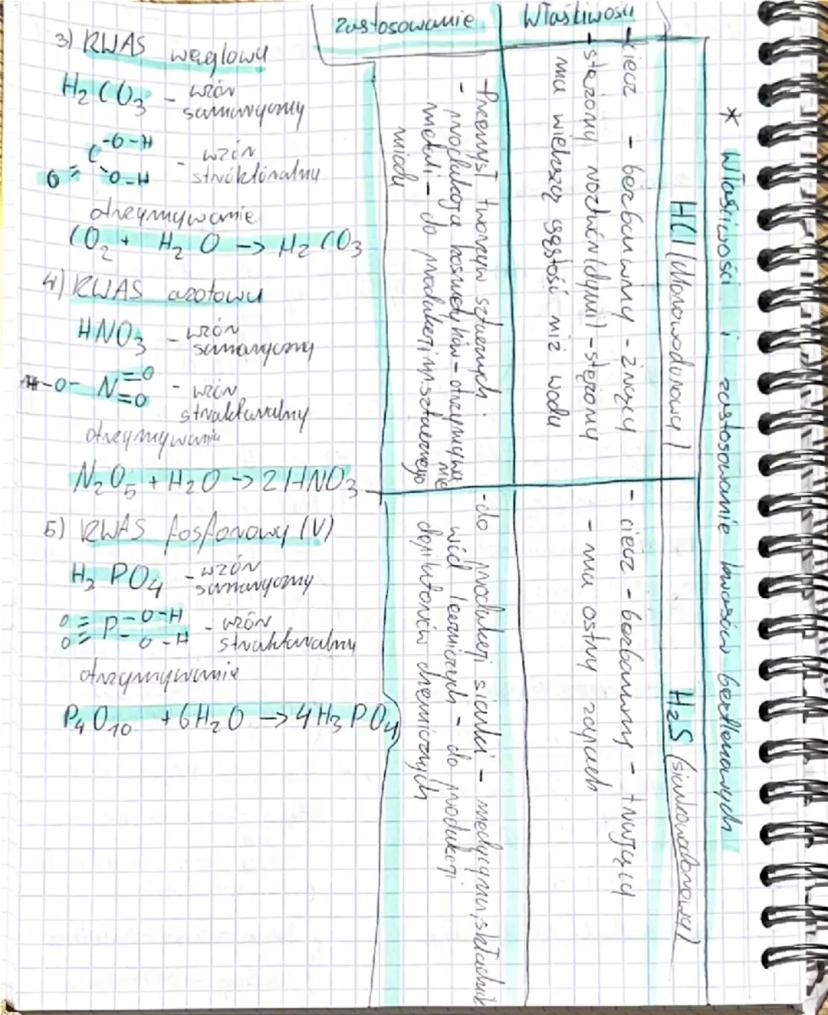 3) KWAS węglowy
H₂CO₃ - wzór
sumaryczny
O=C-O-H
O-H
- wzór
struktóralny
otrzymywanie
CO₂ + H₂O -> H₂CO₃
4) KWAS azotowy
HNO₃ - wzór
sumaryczny
H-O-N=O
=O
- wzór
strukturalny
otrzymywanie
N₂O₅ + H₂O -> 2HNO₃
5) KWAS fosforowy (V)
H₃PO₄ - wzór
sumaryczny
O=P-O-H
O= -O-H
- wzór
strukturalny
otrzymywanie
P₄O₁₀ + 6H₂O -> 4H₃PO₄
* Właściwości i zastosowanie kwasów beztlenowych
HCl (chlorowodorowy) H₂S (siarkowodorowy)
Właściwości
- ciecz - bezbarwny - żrący
- stężony roztwór (dymi) - stężony
ma większą gęstość niż woda
- ciecz - bezbarwny - trujący
- ma ostry zapach
zastosowanie
- Przemysł tworzyw sztucznych
- produkcja kosmetyków - otrzymywanie
metali - do produkcji np. sztucznego
miodu
- do produkcji siarki - medycyna, składnik
wód leczniczych - do produkcji
chemicznych